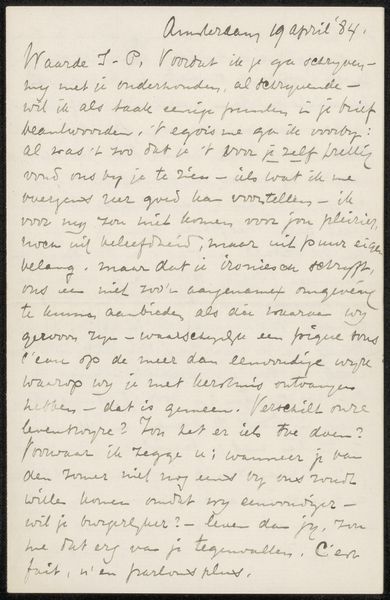 Amsterdam 19 april '84.
Waarde I-P. Voordat ik je ga schrijven —
my met je onderhouden, al schryvende —
wil ik als taak eenige punten in je brief
beantwoorden. 't egoisme ga ik voorby:
al was 't zoo dat je 't voor je zelf prettig
vond ons by je te zien — iets wat ik me
overigens zeer goed kan voorstellen — ik
voor my zou niet komen voor jou pleizier,
noch uit beleefdheid; maar uit puur eigen
belang. maar dat je ironiesch schryft,
ons een niet zoo'n aangename omgeving
te kunnen aanbieden als die waaraan wy
gewoon zyn — waarschynlyk een pique sous
l'eau op de meer dan eenvoudige wyze
waarop wy je met kerstmis ontvangen
hebben — dat is gemeen. Verschilt onze
levenswyze? Zou het er iets toe doen?
Voorwaar ik zegge u; wanneer je van
den zomer niet nog eens by ons zoudt
willen komen omdat wy eenvoudiger —
wil je burgerlyker? — leven dan jy, zou
me dat erg van je tegenvallen. C'est
fait, n'en parlons plus.